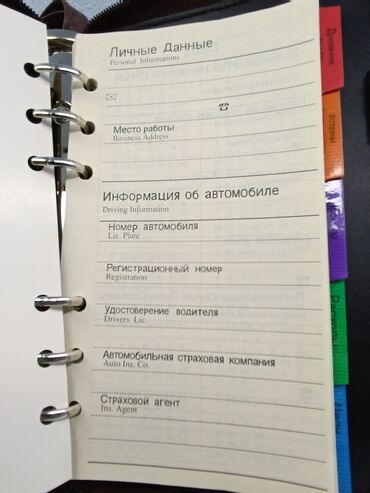 Личные Данные
Personal Informations
Место работы
Business Address
Информация об автомобиле
Driving Information
Номер автомобиля
Lic. Plate
Регистрационный номер
Registration
Удостоверение водителя
Drivers Lic.
Автомобильная страховая компания
Auto Ins. Co.
Страховой агент
Ins. Agent
Дневник